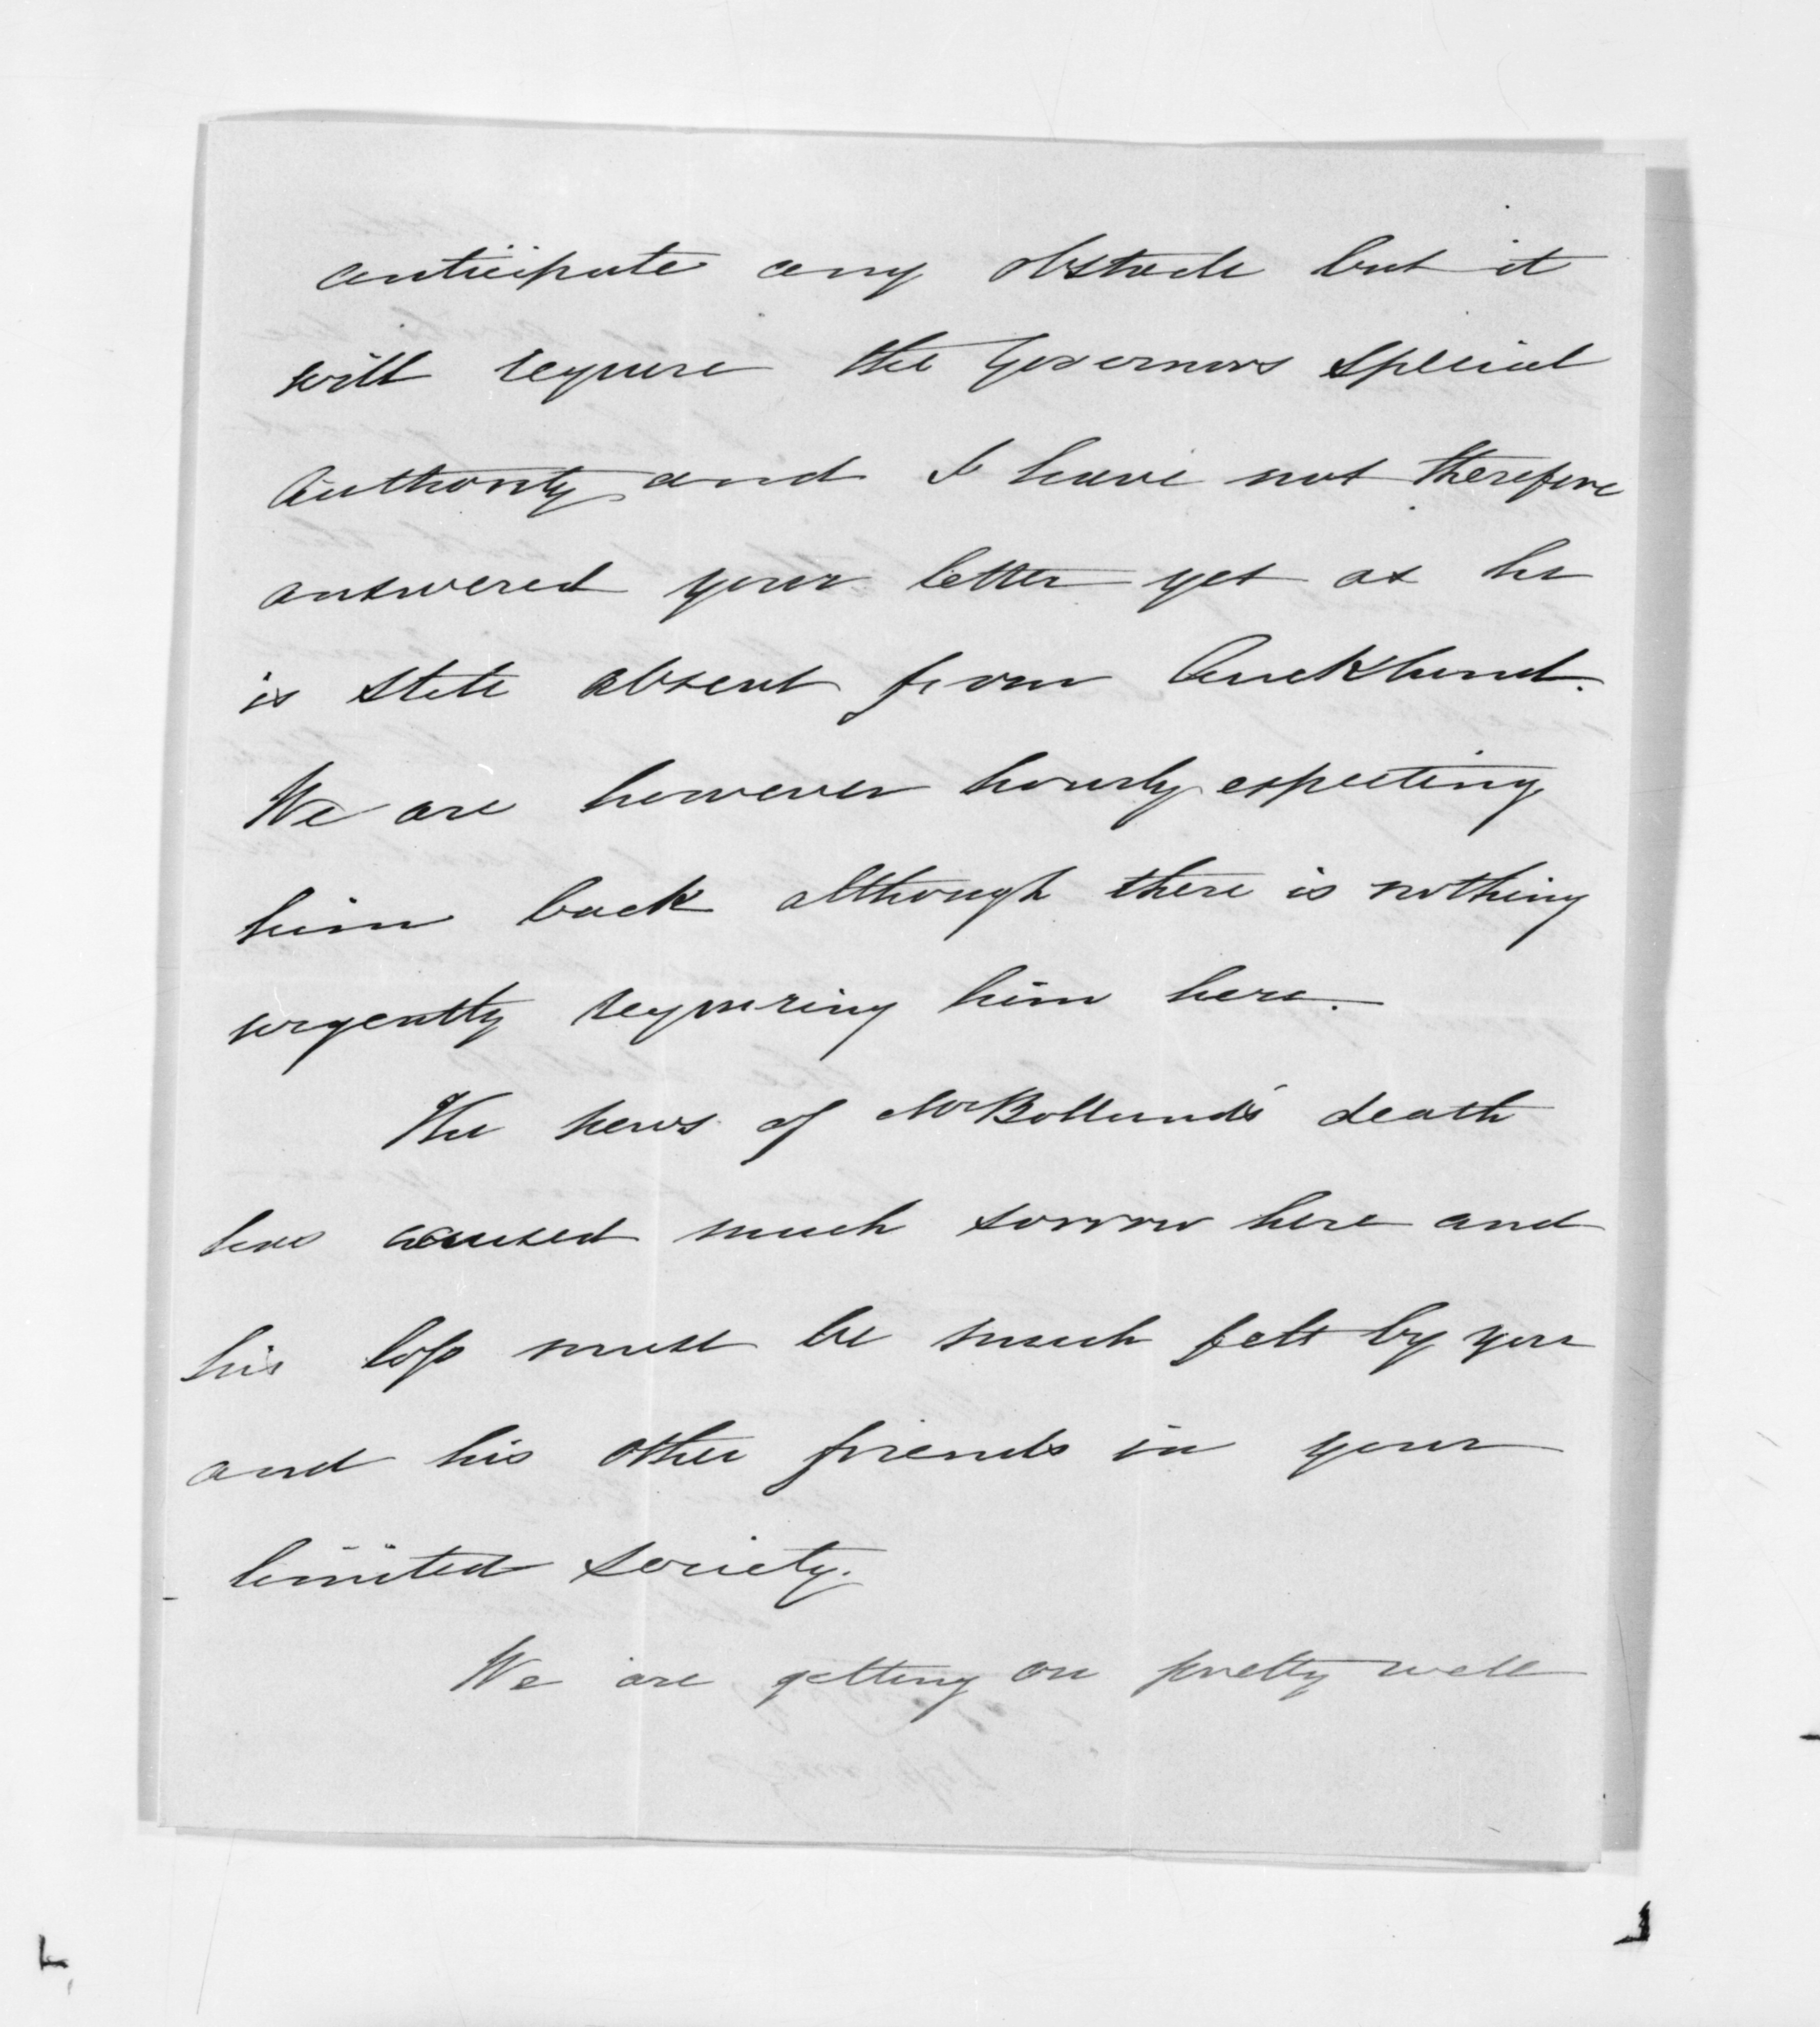 anticipate any obstacle but it
will require the Governors special
authority and I have not therefore
answered your letter yet as he
is still absent from Auckland.
We are however hourly expecting
him back although there is nothing
urgently requiring him here.
The news of Mr Bolland's death
has caused much sorrow here and
his loss must be much felt by you
and his other friends in your
limited society.
We are getting on pretty well